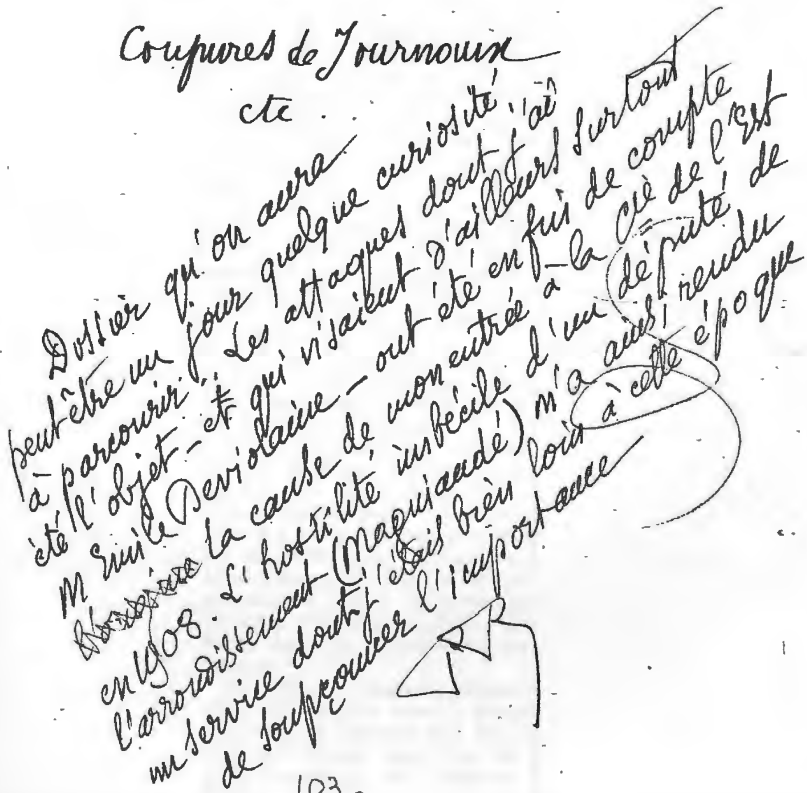 Coupures de Journaux
etc ...
Dossier qu'on aura
peut être un jour quelque curiosité
à parcourir. Les attaques dont j'ai
été l'objet - et qui visaient d'ailleurs surtout
M Emile Deviolaine - ont été en fin de compte
la cause de mon entrée à la Cie de l'Est
en 1908. L'hostilité imbécile d'un député de
l'arrondissement (Magniaudé) m'a ainsi rendu
un service dont j'étais bien loin à cette époque
de soupçonner l'importance
103